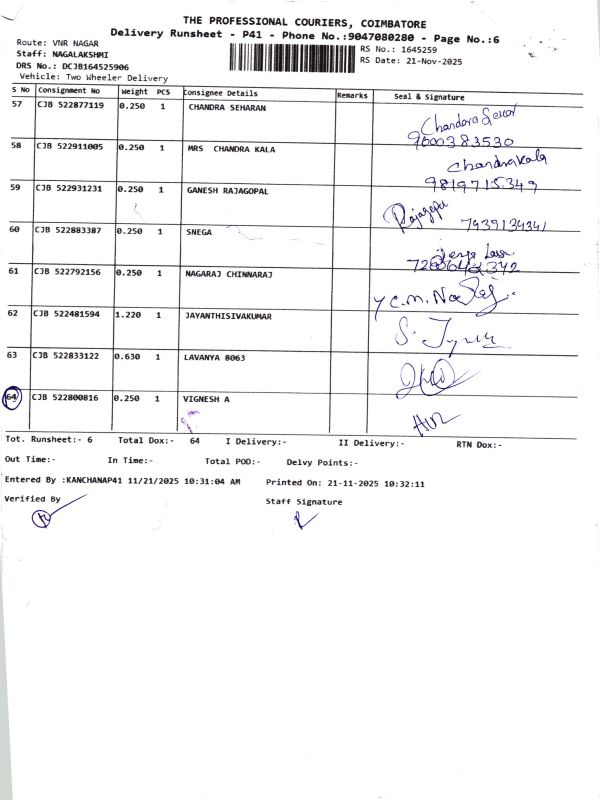 THE PROFESSIONAL COURIERS, COIMBATORE
Delivery Runsheet - P41 - Phone No.:9047080280 - Page No.:6
Route: VNR NAGAR
RS No.: 1645259
Staff: NAGALAKSHMI
RS Date: 21-Nov-2025
DRS No.: DCJB164525906
Vehicle: Two Wheeler Delivery
S No Consignment No Weight PCS Consignee Details Remarks Seal & Signature
57 CJB 522877119 0.250 1 CHANDRA SEHARAN
9600383530
58 CJB 522911005 0.250 1 MRS CHANDRA KALA Chandrakala
9819715349
59 CJB 522931231 0.250 1 GANESH RAJAGOPAL Rajagopal
7939139341
60 CJB 522883387 0.250 1 SNEGA
61 CJB 522792156 0.250 1 NAGARAJ CHINNARAJ
62 CJB 522481594 1.220 1 JAYANTHISIVAKUMAR
63 CJB 522833122 0.630 1 LAVANYA 8063
64 CJB 522800816 0.250 1 VIGNESH A
Tot. Runsheet:- 6 Total Dox:- 64 I Delivery:- II Delivery:- RTN Dox:-
Out Time:- In Time:- Total POD:- Delvy Points:-
Entered By :KANCHANAP41 11/21/2025 10:31:04 AM Printed On: 21-11-2025 10:32:11
Verified By Staff Signature